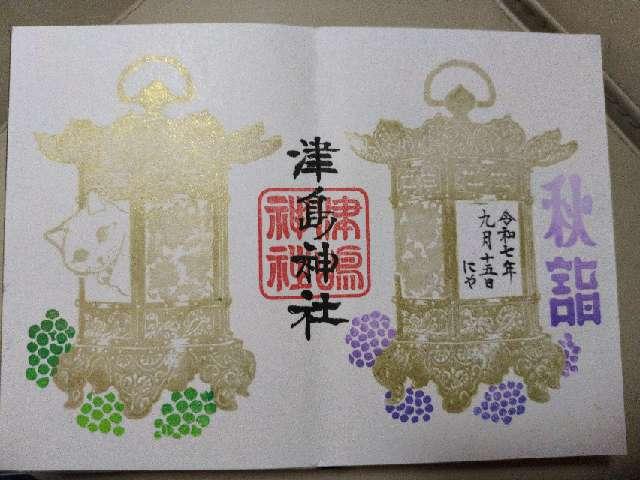 秋詣
令和七年
九月十五日
にゃ
津島神社
津島
神社